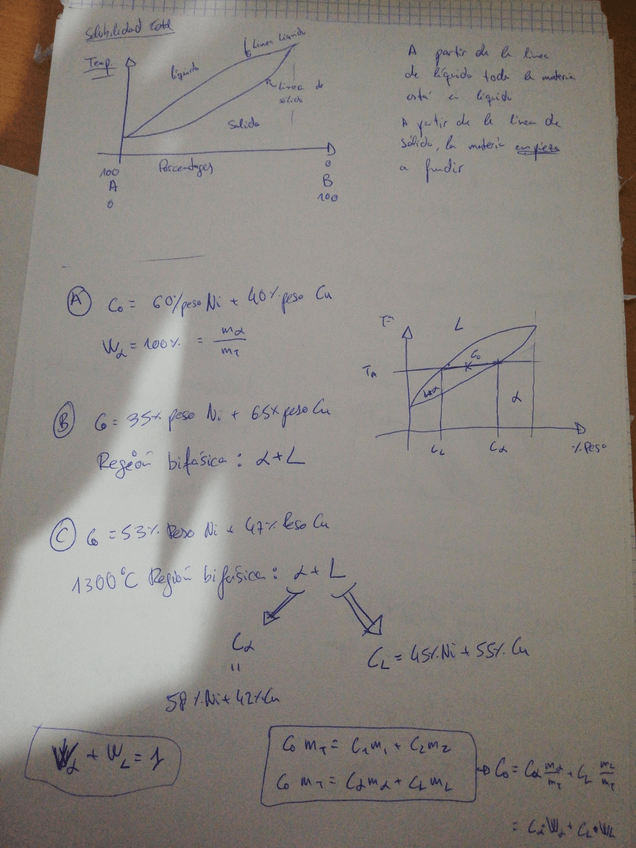 Solubilidad total
Temp
líquido
Línea líquido
Línea de sólido
Solido
100 A 0
Porcentages
0 B 100
A partir de la linea
de líquido toda la materia
está en líquido
A partir de la linea de
sólido, la materia empieza
a fundir
A C₀ = 60%peso Ni + 40% peso Cu
Wα = 100% = mα/mT
L
C₀
α
CL
Cα
% Peso
B C₀ = 35% peso Ni + 65% peso Cu
Región bifásica : α + L
C C₀ = 53% Peso Ni + 47% Peso Cu
1300°C Región bifásica : α + L
Cα
=
58%Ni+42%Cu
CL = 45%Ni + 55% Cu
Wα + WL = 1
C₀ mT = C₁m₁ + C₂m₂
C₀ mT = Cαmα + CL mL
→ C₀ = Cα mα/mT + CL mL/mT
= Cα·Wα + CL·WL